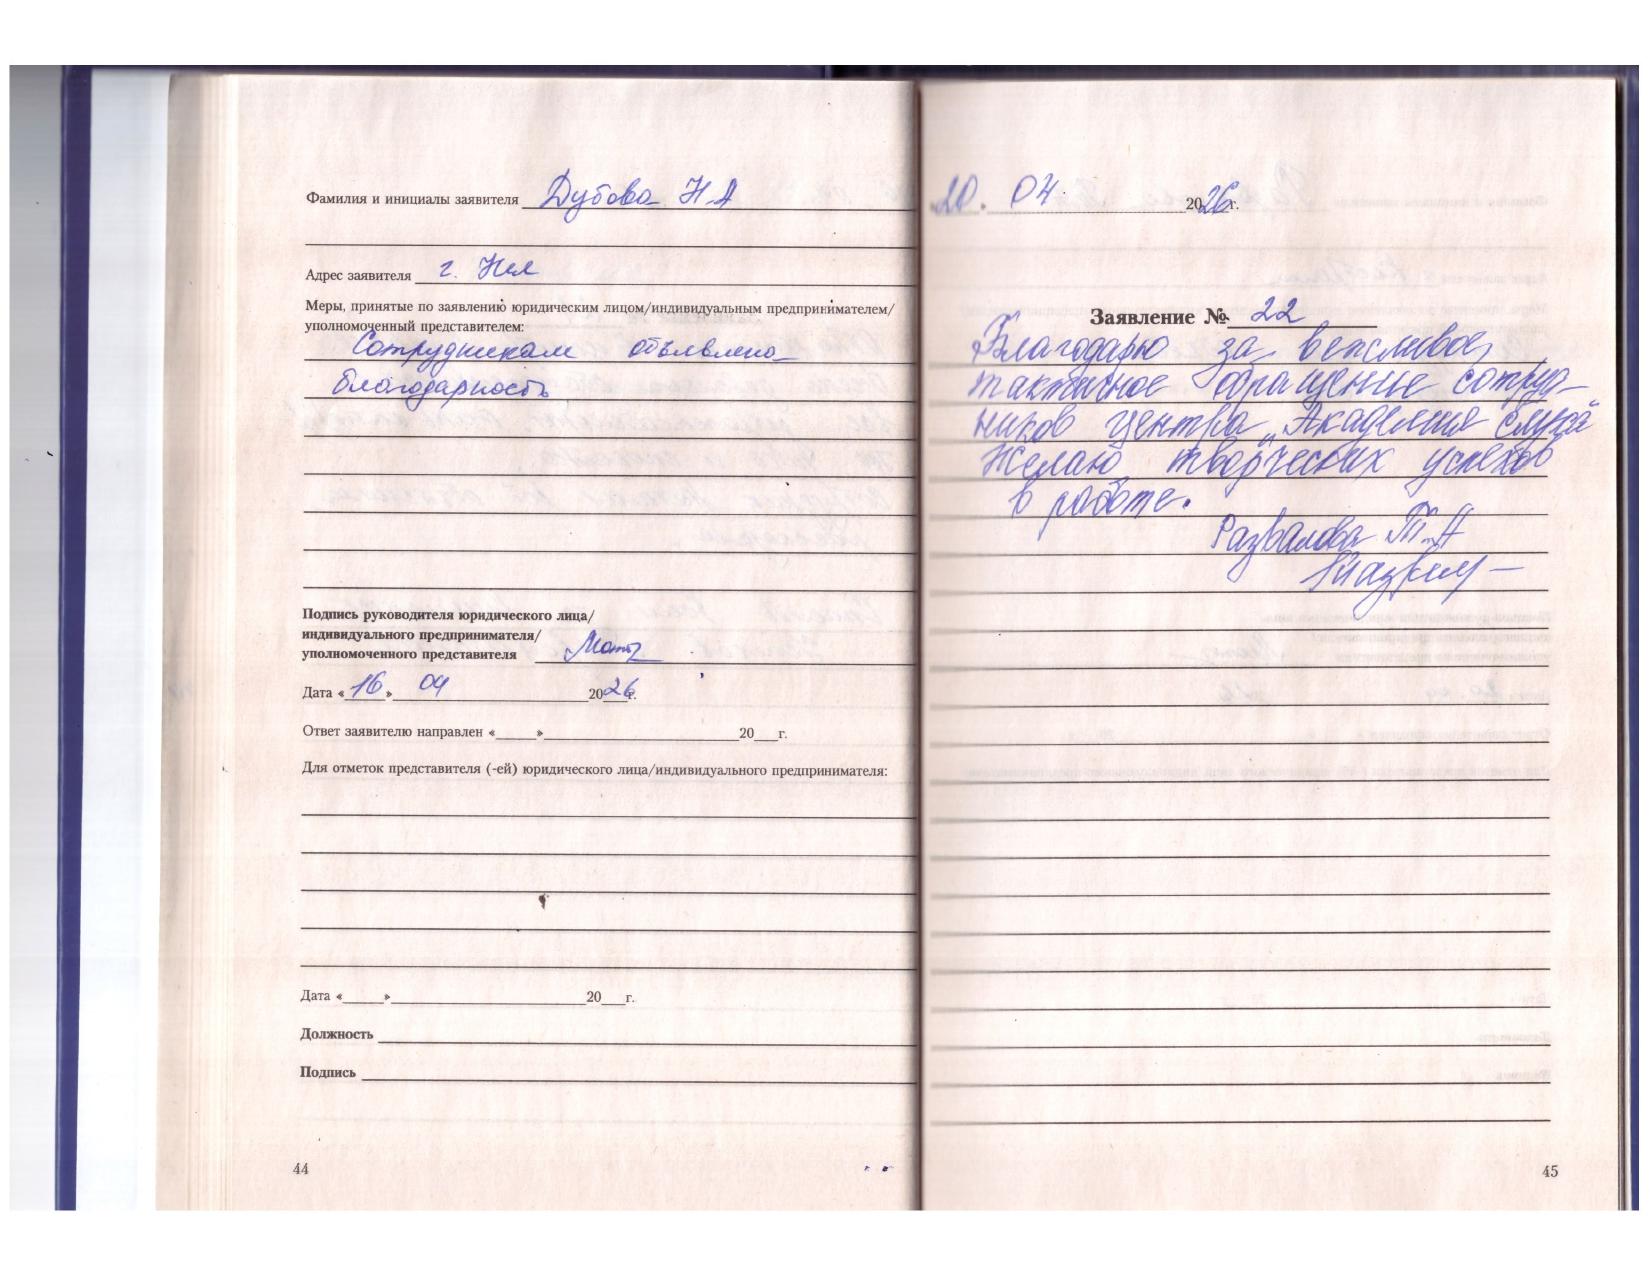 Фамилия и инициалы заявителя Дубова Н А
Адрес заявителя г.
Меры, принятые по заявлению юридическим лицом/индивидуальным предпринимателем/
уполномоченный представителем:
Сотрудникам объявлена
благодарность
Подпись руководителя юридического лица/
индивидуального предпринимателя/
уполномоченного представителя
Дата « 16 » 04 2026г.
Ответ заявителю направлен «_____»_____20___г.
Для отметок представителя (-ей) юридического лица/индивидуального предпринимателя:
Дата «_____»_____20___г.
Должность
Подпись
44
20. 04 2026г.
Заявление № 22
Благодарю за вежливое,
тактичное обращение сотруд-
ников центра „Академия слуха"
Желаю творческих успехов
в работе.
Развалова Т.А
45